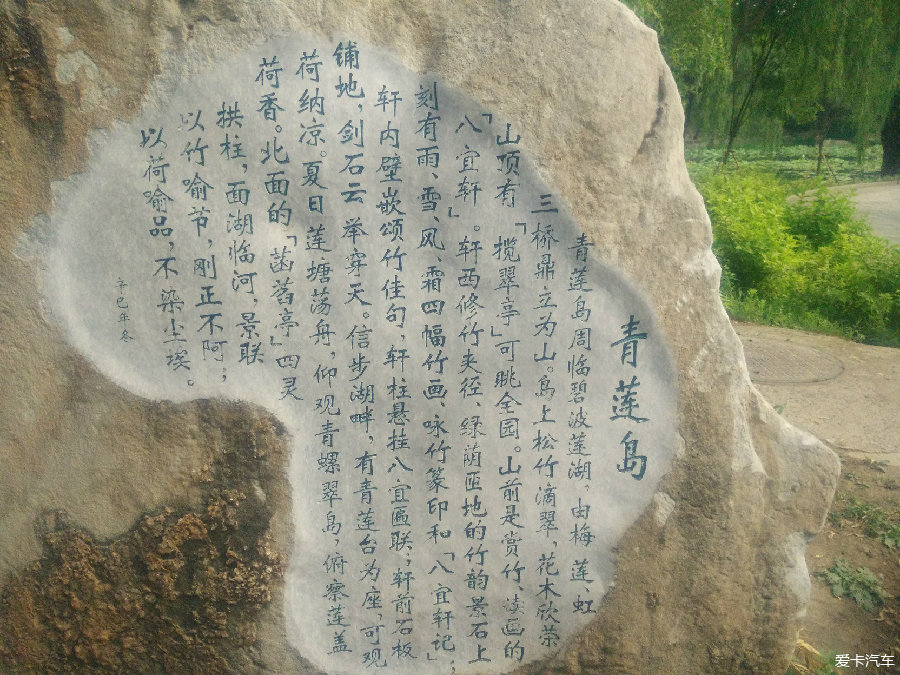 青莲岛
青莲岛周临碧波莲湖。由梅、莲、虹
三桥鼎立为山。岛上松竹滴翠,花木欣荣
山顶有「揽翠亭」可眺全园。山前是赏竹、读画的
「八宜轩」。轩西修竹夹径、绿荫匝地的竹韵景石上
刻有雨、雪、风、霜四幅竹画、咏竹篆印和「八宜轩记」;
轩内壁嵌颂竹佳句,轩柱悬挂八宜匾联;轩前石板
铺地,剑石云举穿天。信步湖畔,有青莲台为座,可观
荷纳凉。夏日莲塘荡舟,仰观青螺翠岛,俯察莲盖
荷香。北面的「菡萏亭」四灵
拱柱,面湖临河,景联
以竹喻节,刚正不阿;
以荷喻品,不染尘埃。
辛巳年冬
爱卡汽车